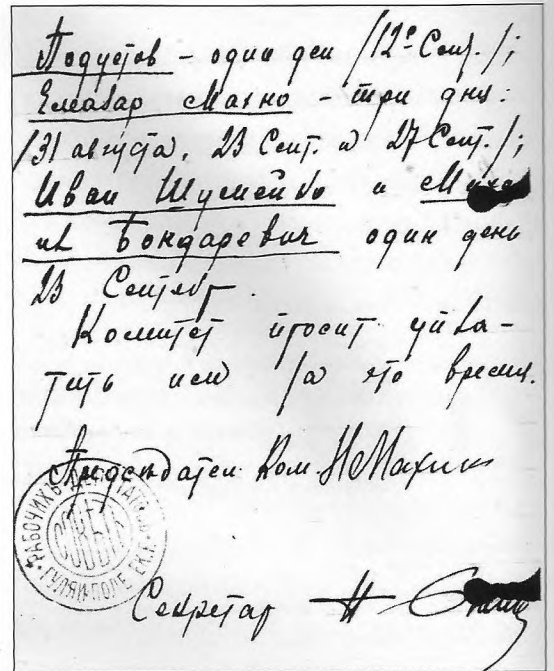 Подустов - один ден /12е Сент./;
Елеазар Махно - три дня:
/31 августа, 23 Сент. и 27 Сент./;
Иван Шумейко и Миха
ил Бондаревич один день
23 Сентябр
Комитет просит упла-
тить им за это время.
Председател Ком. Н Махно
РАБОЧИХЪ ДЕПУТАТОВЪ
СОВѢТЪ
ГУЛЯЙ-ПОЛЕ ЕК.Г.
Секретар